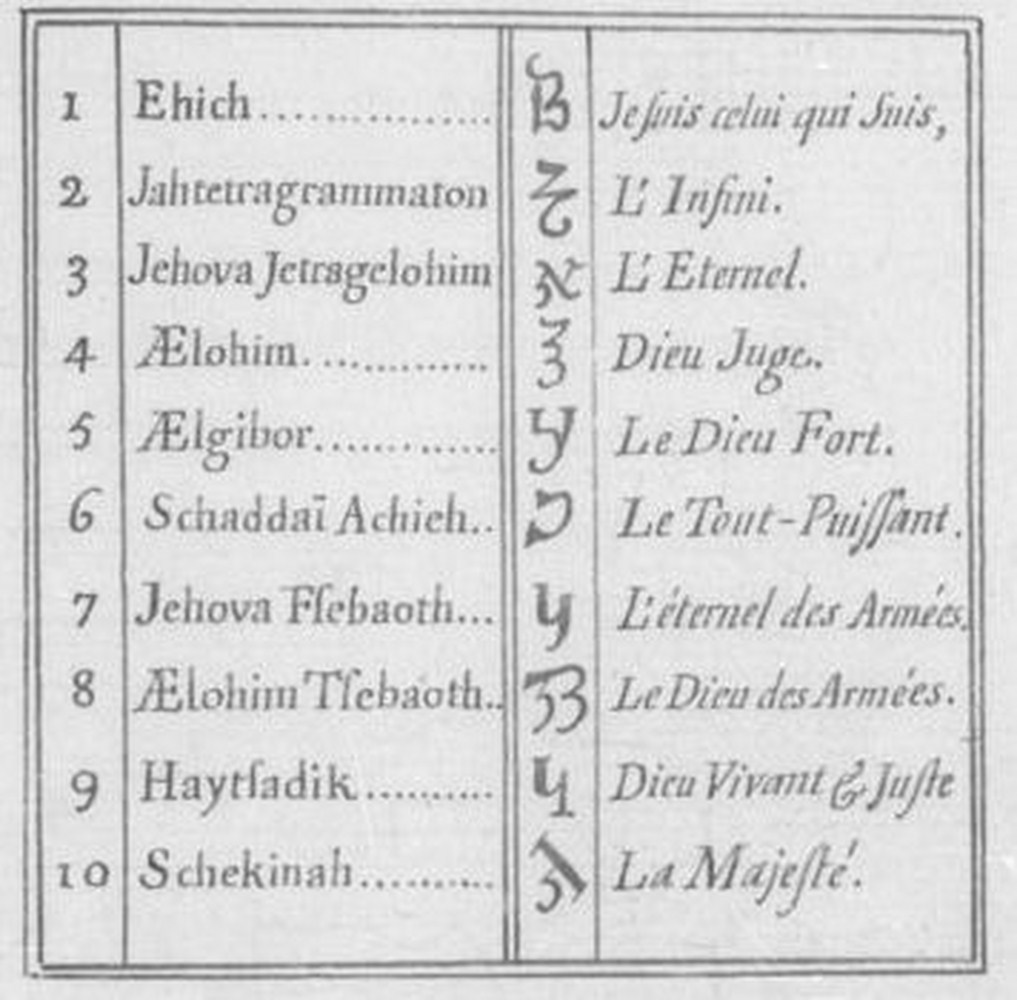 1 Ehich................ Je ſuis celui qui Suis,
2 Jahtetragrammaton L' Infini.
3 Jehova Jetragelohim L' Eternel.
4 Ælohim.............. Dieu Juge.
5 Ælgibor.............. Le Dieu Fort.
6 Schaddaī Achieh.. Le Tout-Puiſſant.
7 Jehova Fſebaoth... L'éternel des Armées.
8 Ælohim Tſebaoth.. Le Dieu des Armées.
9 Haytſadik.......... Dieu Vivant & Juſte
10 Schekinah.......... La Majeſté.